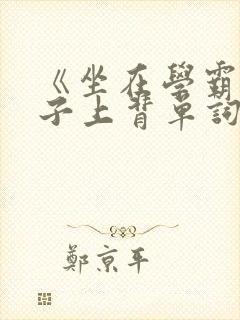 《坐在學霸
子上背單詞
鄭京平